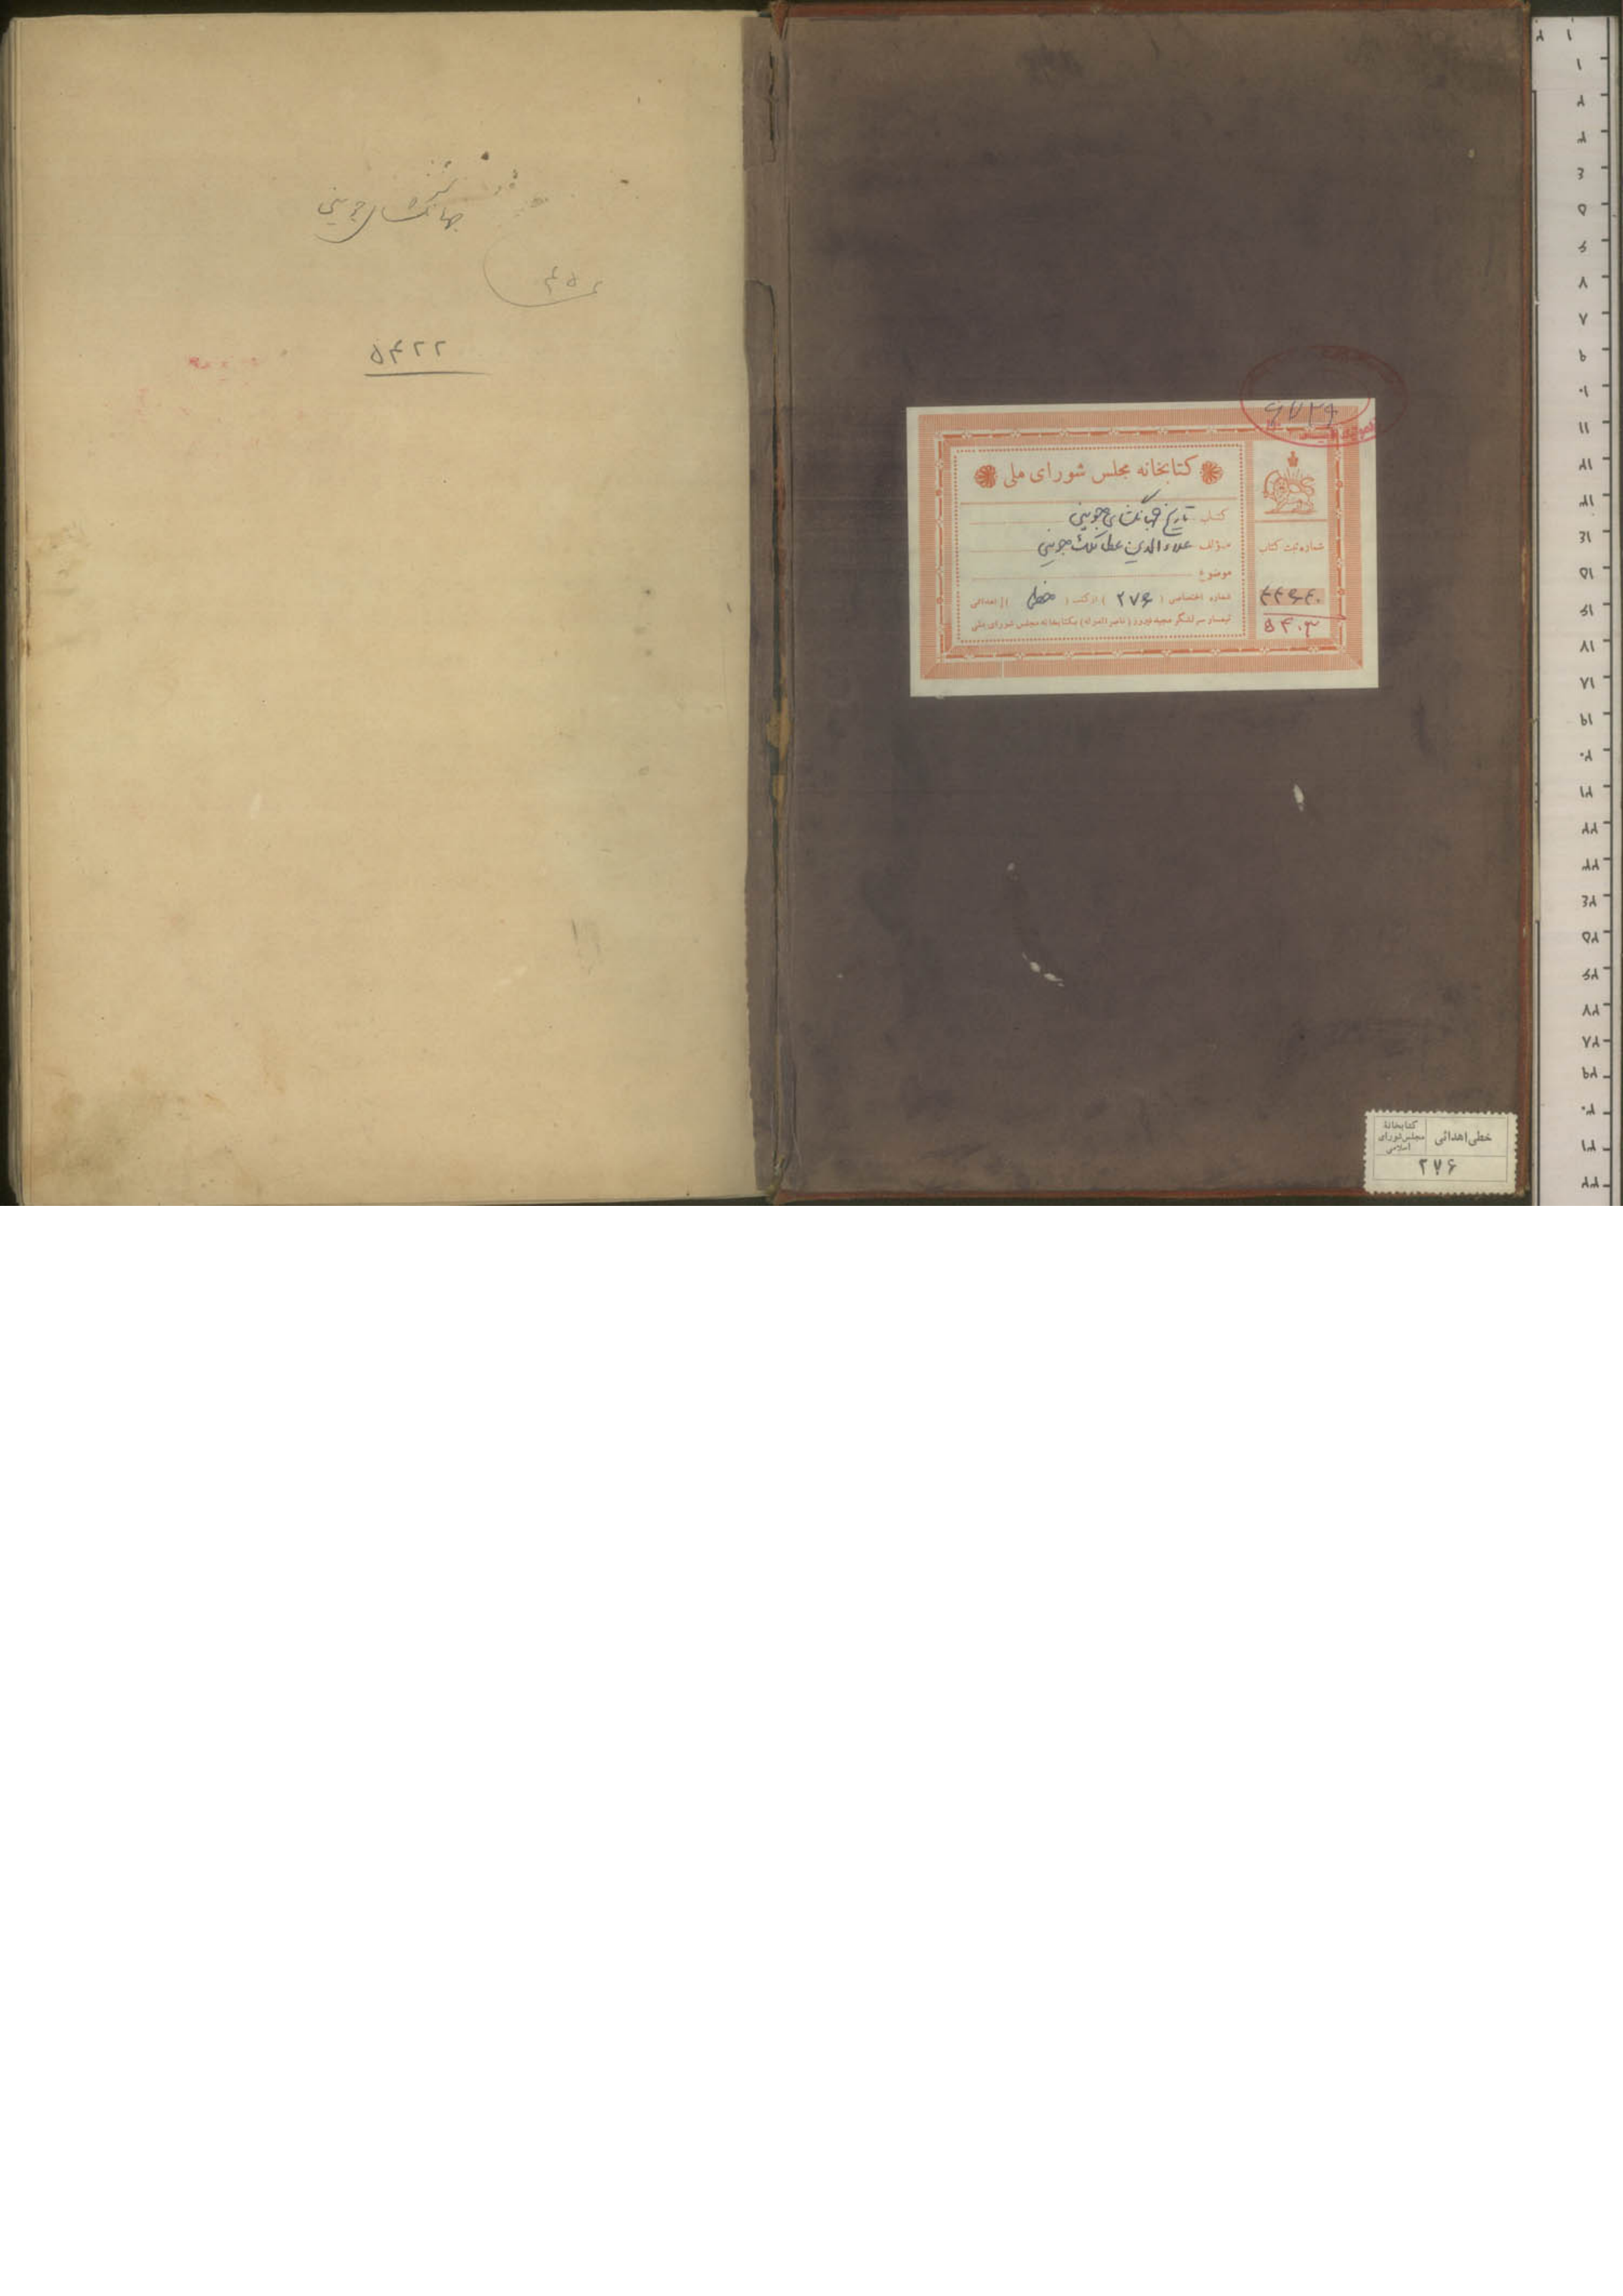 جهانگشای جوینی
۵۴۲۲
کتابخانه مجلس شورای ملی
کتاب تاریخ جهانگشای جوینی
مؤلف علاءالدین عطا ملک جوینی
موضوع
شماره اختصاصی ( ۲۷۶ ) از کتب ( خطی ) اهدائی
تیمسار سرلشگر مجید فیروز ( ناصرالدوله ) بکتابخانه مجلس شورای ملی
شماره ثبت کتاب
۵۴۰۳
خطی اهدائی
کتابخانهٔ
مجلس شورای
اسلامی
۲۷۶